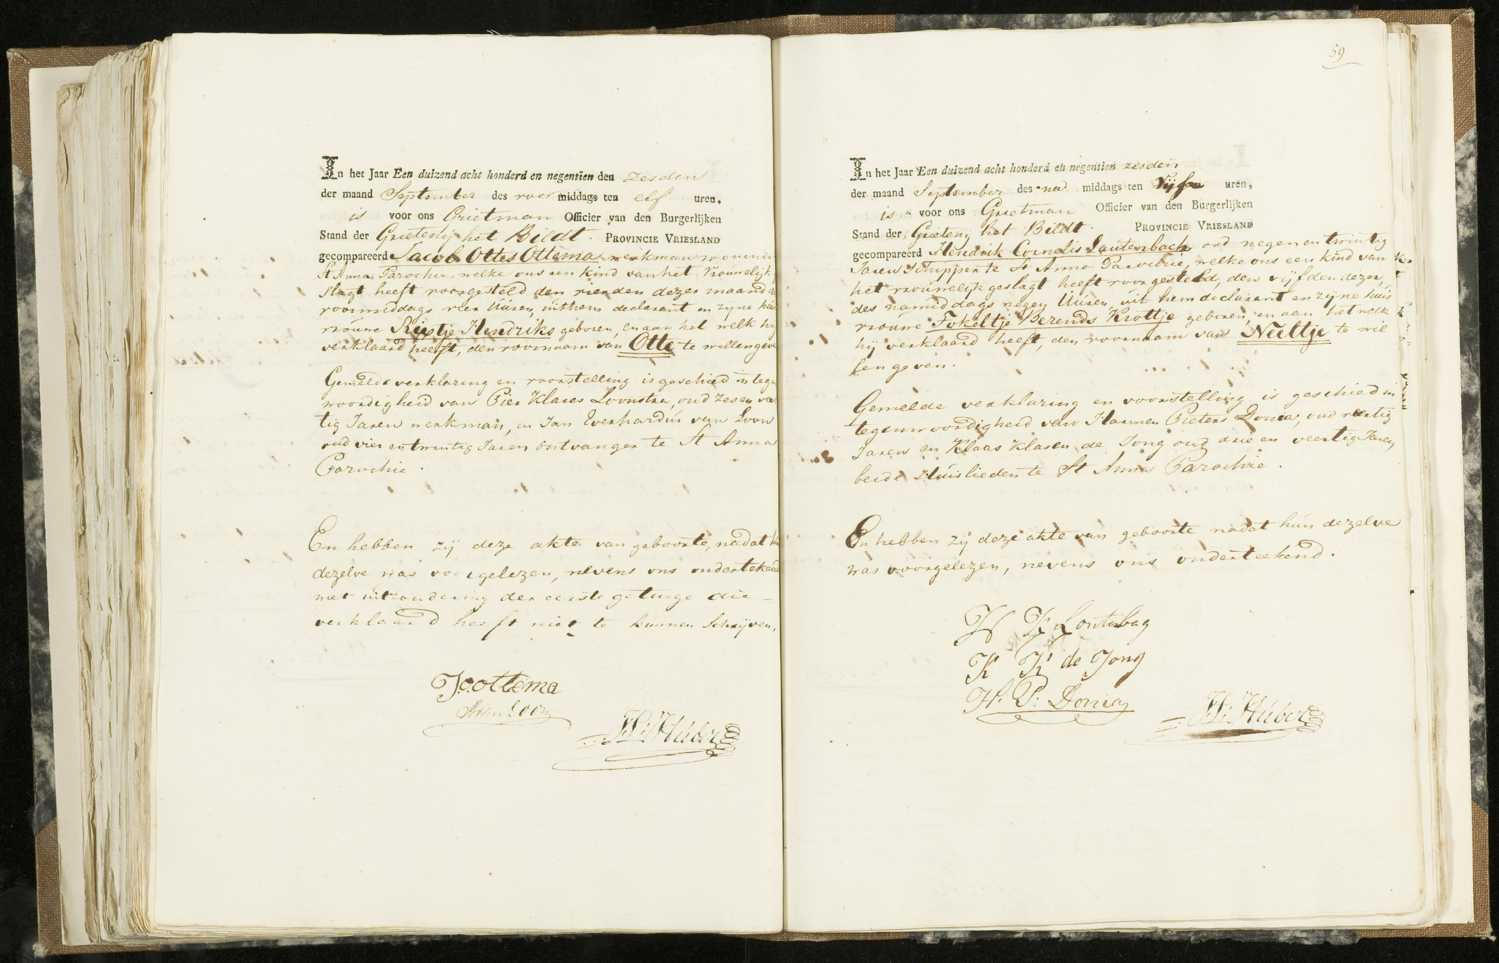 In het Jaar Een duizend acht honderd en negentien den zesden
der maand September des voor middags ten elf uren,
is voor ons Grietman Officier van den Burgerlijken
Stand der Grieteny het Bildt. PROVINCIE VRIESLAND
gecompareerd Jacob Ottes Ottema, werkman woonen
St Anna Parochie welke ons een kind van het Vrouwelijk
slagt heeft voorgesteld den vierden dezes maands
voormiddags vier Uuren, uit hem declarant en zijne
vrouwe Hendriks geboren, en aan het welk hij
verklaard heeft, den voornaam van Otte te willen geven
Gemelde verklaring en voorstelling is geschied in tegen
woordigheid van Pier Klases Loonstra, oud zesen
tig Jaren werkman, en Jan Everhardus van Loon
oud vier en twintig Jaren ontvanger te St Anna
Parochie.
En hebben zij deze akte van geboorte, nadat
dezelve was voorgelezen, nevens ons ondertekend
met uitzondering der eerste getuige die
verklaard heeft niet te kunnen Schrijven.
JOOttema
JvanLoon
Huber
59
In het Jaar Een duizend acht honderd en negentien zesden
der maand September des na middags ten Vijf uren,
is voor ons Grietman Officier van den Burgerlijken
Stand der Grieteny het Bildt. PROVINCIE VRIESLAND
gecompareerd Hendrik Cornelis Lautenbach oud negen en twintig
Jaren Schipper te St Anna Parochie, welke ons een kind van
het vrouwelijk geslagt heeft voorgesteld, den vijfden dezer,
des namiddags negen Uuren, uit hem declarant en zijne huis
vrouwe Fokeltje Berends Krottje geboren en aan het welk
hij verklaard heeft, den voornaam van Neeltje te wil
len geven.
Gemelde verklaring en voorstelling is geschied in
tegenwoordigheid van Harmen Pieters Donia, oud
Jaren en Klaas Klasen, de Jong oud drie en veertig Jaren,
beide Huislieden te St Anna Parochie.
En hebben zij deze akte van geboorte nadat hun dezelve
was voorgelezen, nevens ons onderteekend.
H K Loutebag
K K de Jong
H. P. Donia
Huber